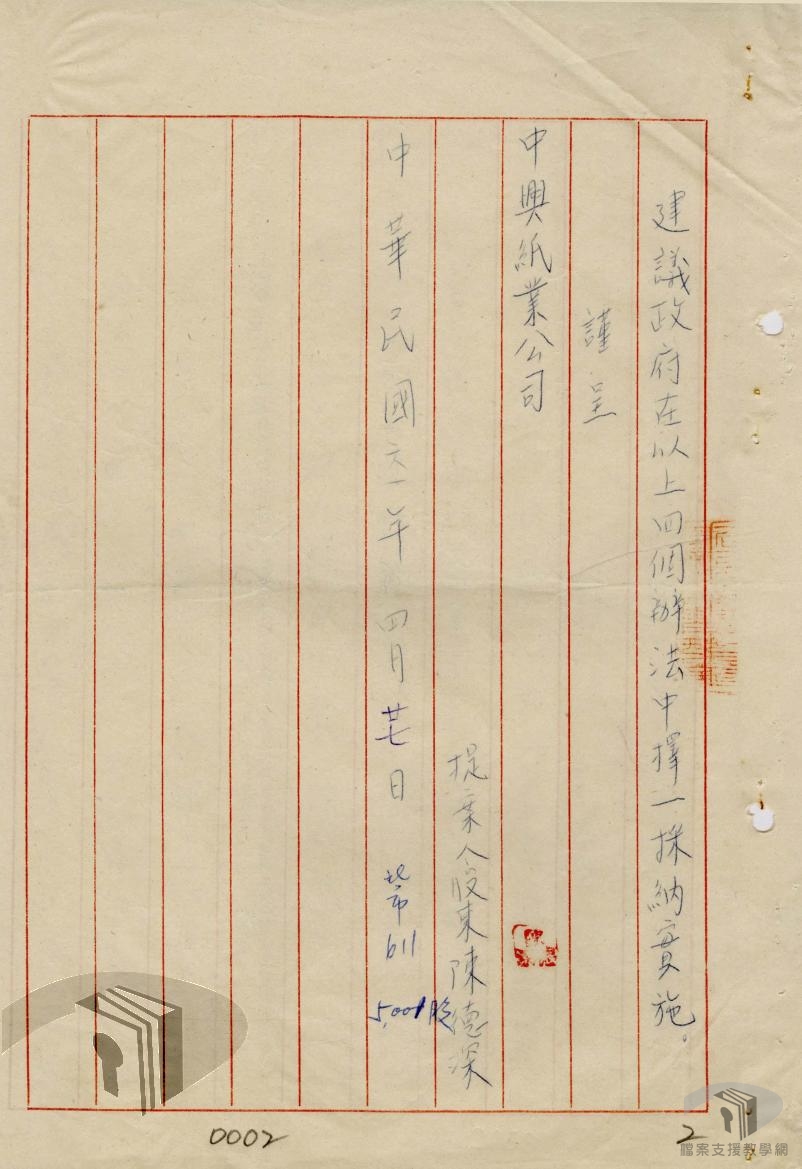 建議政府在以上四個辦法中擇一採納實施。
謹呈
中興紙業公司
提案人股東陳德深
中華民國六一年四月廿七日
北市611
5,001股
0002
2
檔案支援教學網